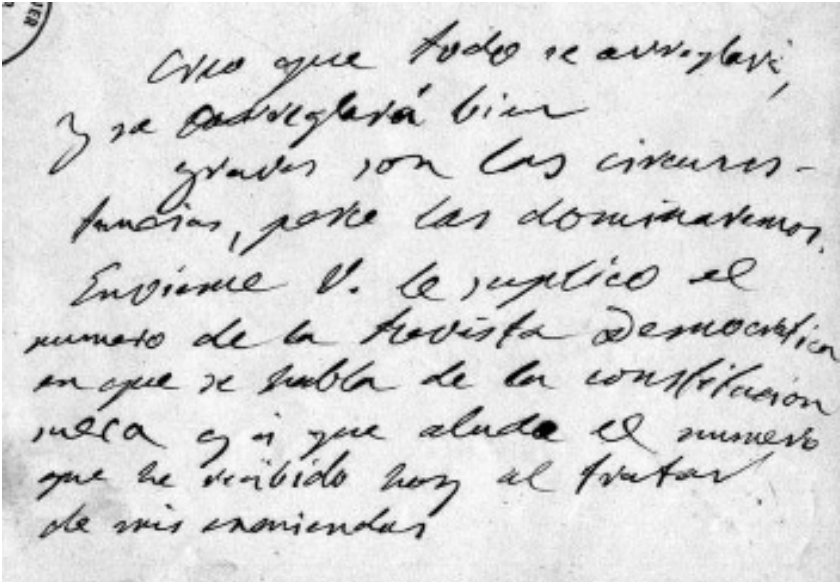 IER
Creo que todo se arreglará,
y se arreglará bien
graves son las circuns-
tancias, pero las dominaremos.
Envieme V. le suplico el
numero de la Revista Democratica
en que se habla de la constitucion
sueca y a que alude el numero
que he recibido hoy al tratar
de mis enmiendas